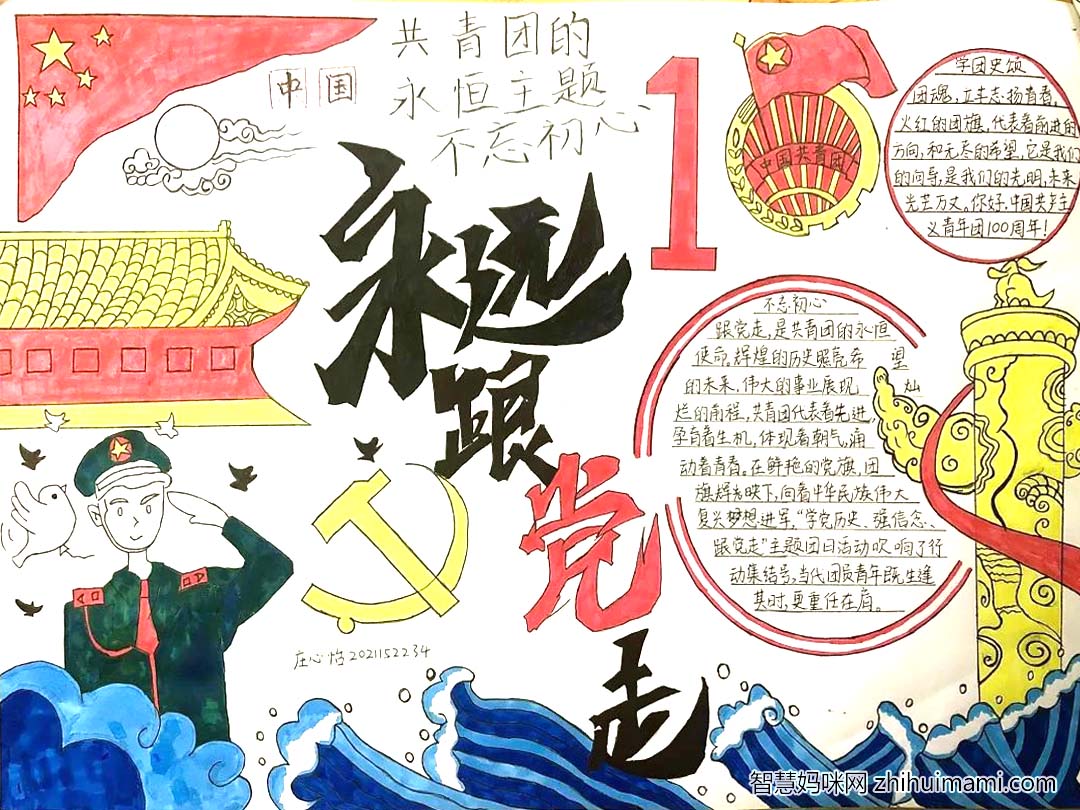 共青团的
永恒主题
不忘初心
中国
永远
跟
党
走
1
中国共青团
学团史颂
团魂,立丰志·扬青春,
火红的团旗,代表着前进的
方向,和无尽的希望,它是我们
的向导,是我们的光明,未来
光芒万丈。你好,中国共产主
义青年团100周年!
不忘初心
跟党走,是共青团的永恒
使命,辉煌的历史照亮希望
的未来,伟大的事业展现灿
烂的前程,共青团代表着先进
孕育着生机,体现着朝气,涌
动着青春。在鲜艳的党旗,团
旗辉映下,向着中华民族伟大
复兴梦想进军,“学党历史、强信念、
跟党走”主题团日活动吹响了行
动集结号,当代团员青年既生逢
其时,更重任在肩。
庄心怡 2021152234
智慧妈咪网 zhihuimami.com